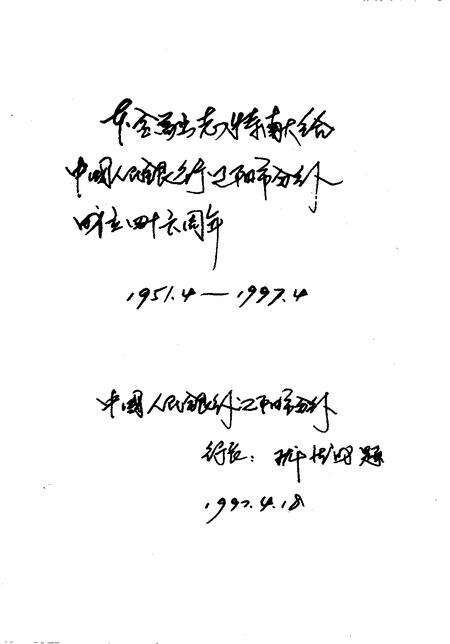 本金融志特献给
中國人民银行辽阳市分行
成立四十六周年
1951.4—1997.4
中國人民银行辽阳市分行
行长: 题
1997.4.18